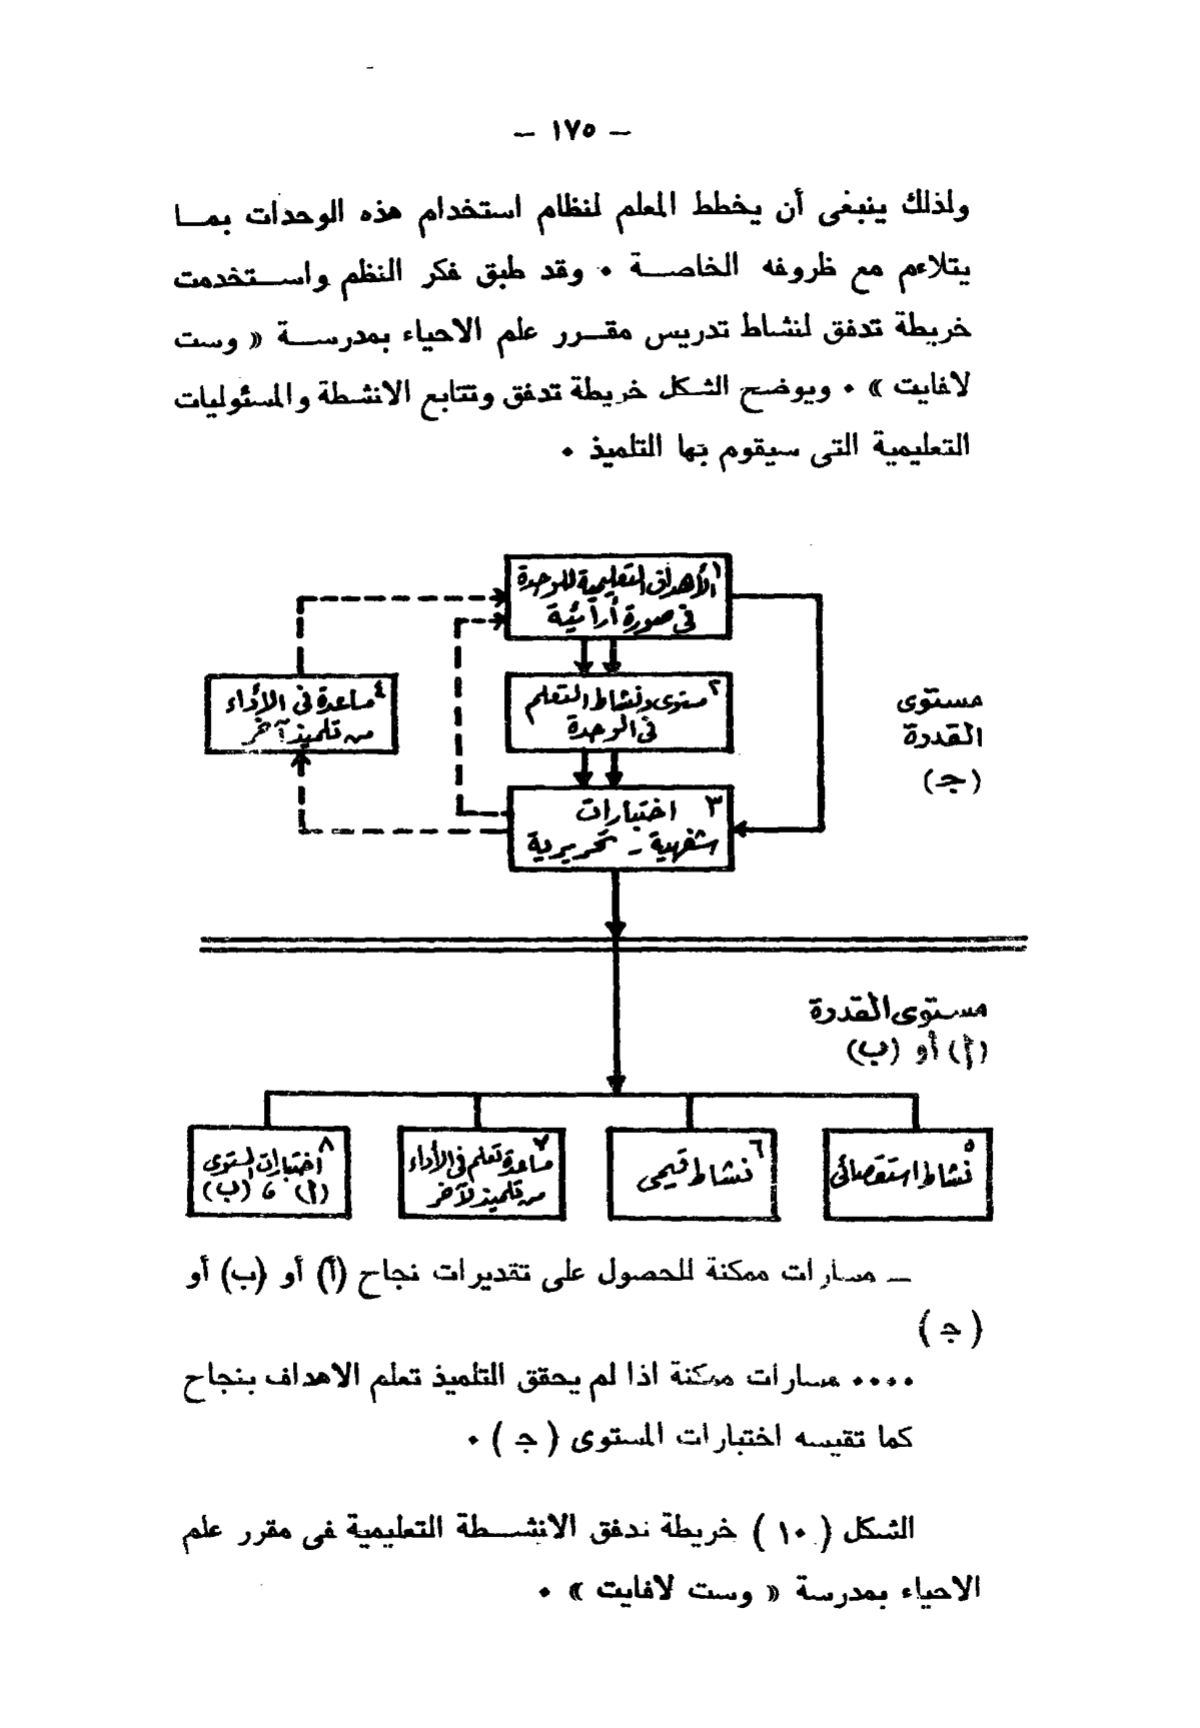 – ١٧٥ –
ولذلك ينبغى أن يخطط المعلم لنظام استخدام هذه الوحدات بمــا
يتلاءم مع ظروفه الخاصــة ٠ وقد طبق فكر النظم واســتخدمت
خريطة تدفق لنشاط تدريس مقــرر علم الاحياء بمدرســة « وست
لافايت » ٠ ويوضح الشكل خريطة تدفق وتتابع الانشطة والمسئوليات
التعليمية التى سيقوم بها التلميذ ٠
١ الأهداف التعليمية للوحدة
فى صورة أدائية
٢ مستوى ونشاط التعلم
فى الوحدة
٣ اختبارات
شفهية - تحريرية
٤ مساعدة فى الأداء
من تلميذ آخر
مستوى
القدرة
(جـ)
مستوى القدرة
(أ) أو (ب)
٥
نشاط استقصائى
٦
نشاط قيمى
٧
مساعدة تعلم فى الأداء
من تلميذ لآخر
٨
اختبارات لمستوى
(أ) ، (ب)
– مسارات ممكنة للحصول على تقديرات نجاح (أ) أو (ب) أو
(جـ)
٠٠٠٠ مسارات ممكنة اذا لم يحقق التلميذ تعلم الاهداف بنجاح
كما تقيسه اختبارات المستوى (جـ) ٠
الشكل (١٠) خريطة تدفق الانشــطة التعليمية فى مقرر علم
الاحياء بمدرسة « وست لافايت » ٠